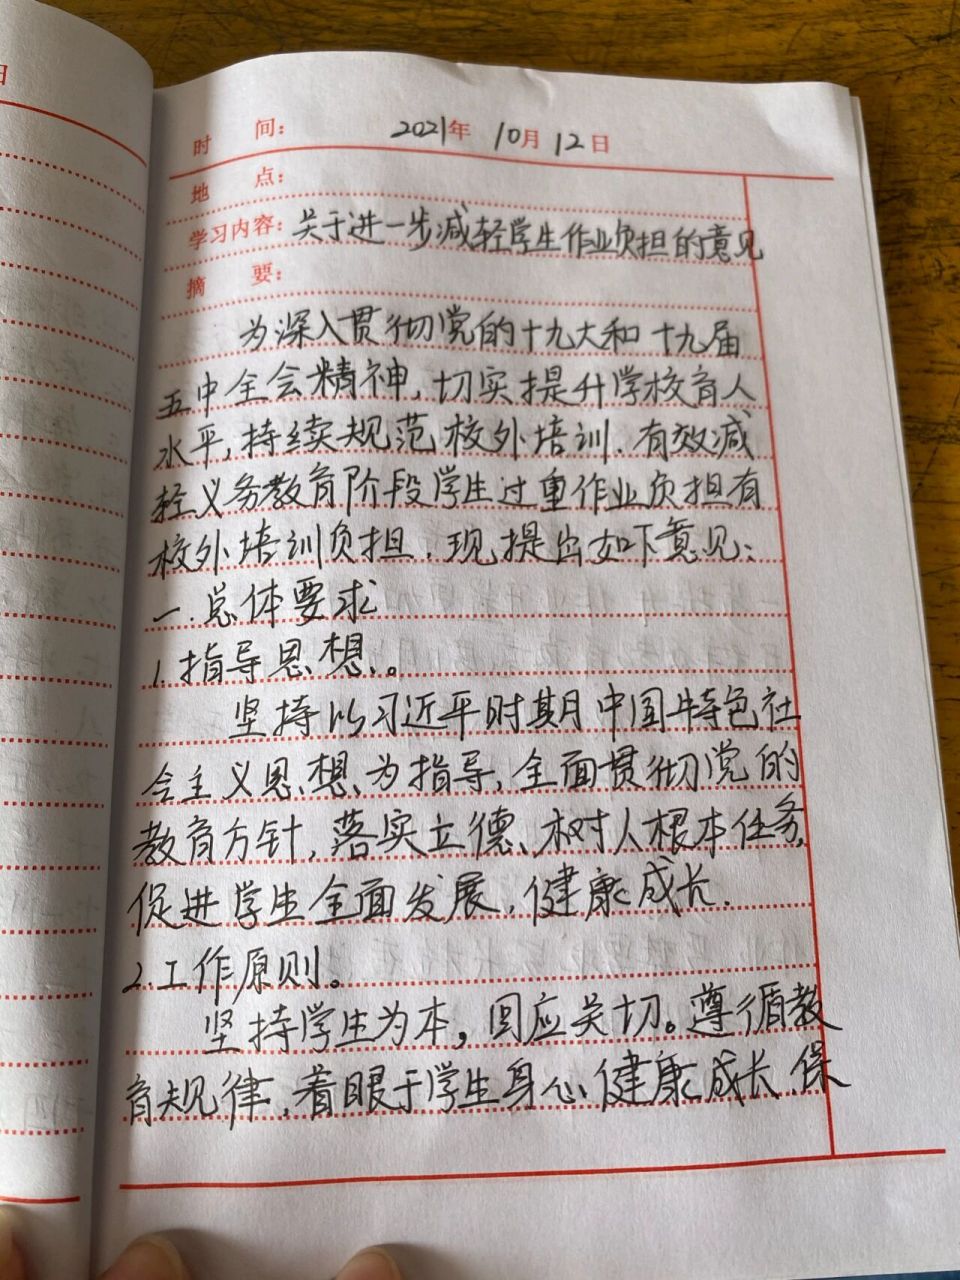 日
时 间： 2021年 10月 12日
地 点：
学习内容：关于进一步减轻学生作业负担的意见
摘 要：
为深入贯彻党的十九大和十九届
五中全会精神，切实提升学校育人
水平，持续规范校外培训．有效减
轻义务教育阶段学生过重作业负担有
校外培训负担．现提出如下意见：
一.总体要求
1.指导思想。
坚持以习近平时期中国特色社
会主义思想为指导，全面贯彻党的
教育方针，落实立德、树人根本任务，
促进学生全面发展，健康成长．
2.工作原则。
坚持学生为本，回应关切。遵循教
育规律，着眼于学生身心健康成长．保